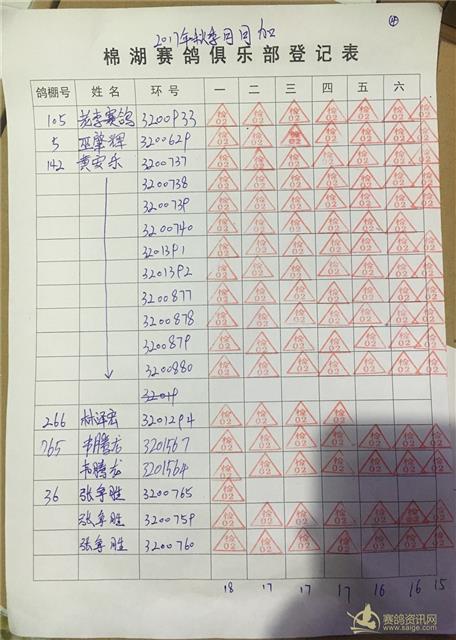 2017年秋季同同加
棉湖赛鸽俱乐部登记表
鸽棚号 姓名 环号 一 二 三 四 五 六
105 老李赛鸽 3200933 检02 检02 检02 检02 检02 检02 检02
5 巫肇辉 3200629 检02 检02 检02 检02 检02 检02 检02
142 黄安乐 3200737 检02 检02 检02 检02 检02 检02 检02
3200738 检02 检02 检02 检02 检02 检02 检02
3200739 检02 检02 检02 检02 检02 检02 检02
3200740 检02 检02 检02 检02 检02 检02
3201391 检02 检02 检02 检02 检02 检02 检02
3201392 检02 检02 检02 检02 检02 检02 检02
3200877 检02 检02 检02 检02 检02 检02 检02
3200878 检02 检02 检02 检02 检02 检02 检02
3200879 检02 检02 检02 检02 检02 检02 检02
3200880 检02 检02 检02 检02 检02 检02 检02
266 林泽宏 3201294 检02 检02 检02 检02
765 韦腾龙 3201567 检02 检02 检02 检02 检02 检02 检02
韦腾龙 3201564 检02 检02 检02 检02 检02 检02 检02
36 张争胜 3200765 检02
张争胜 3200759 检02 检02 检02 检02 检02 检02 检02
张争胜 3200760 检02 检02 检02 检02 检02 检02 检02
18 17 17 17 16 16 15
赛鸽资讯网
www.saige.com